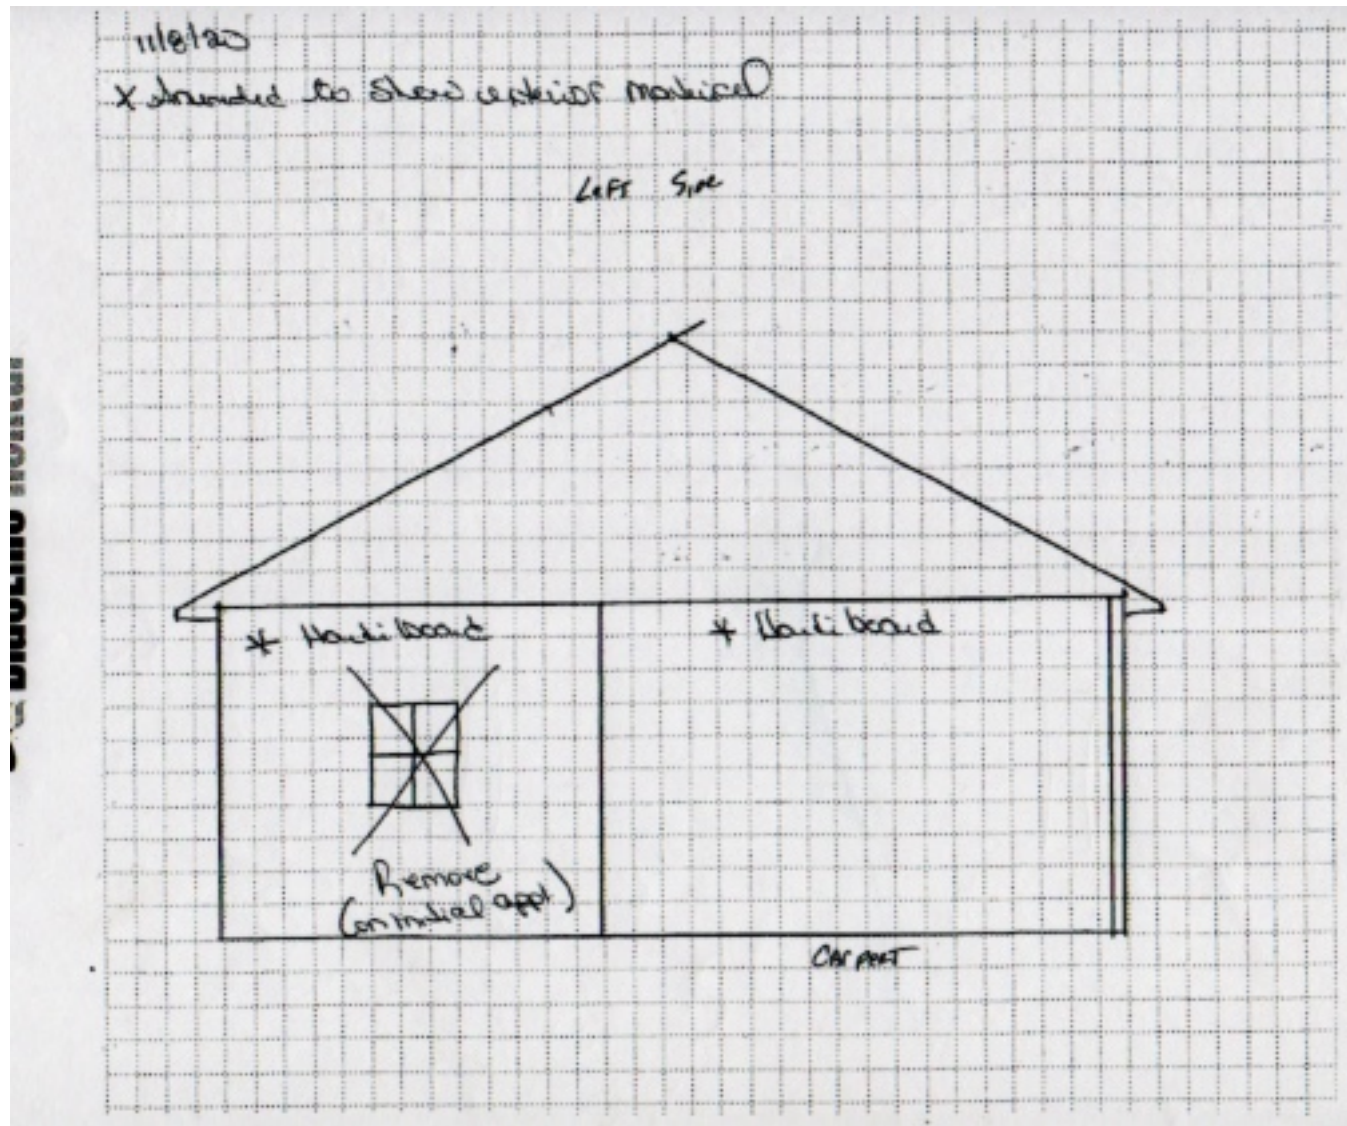 11/8/20
* Amended to show exterior material
Left Side
* Hardiboard
* Hardiboard
Remove
(on initial appt)
Carport